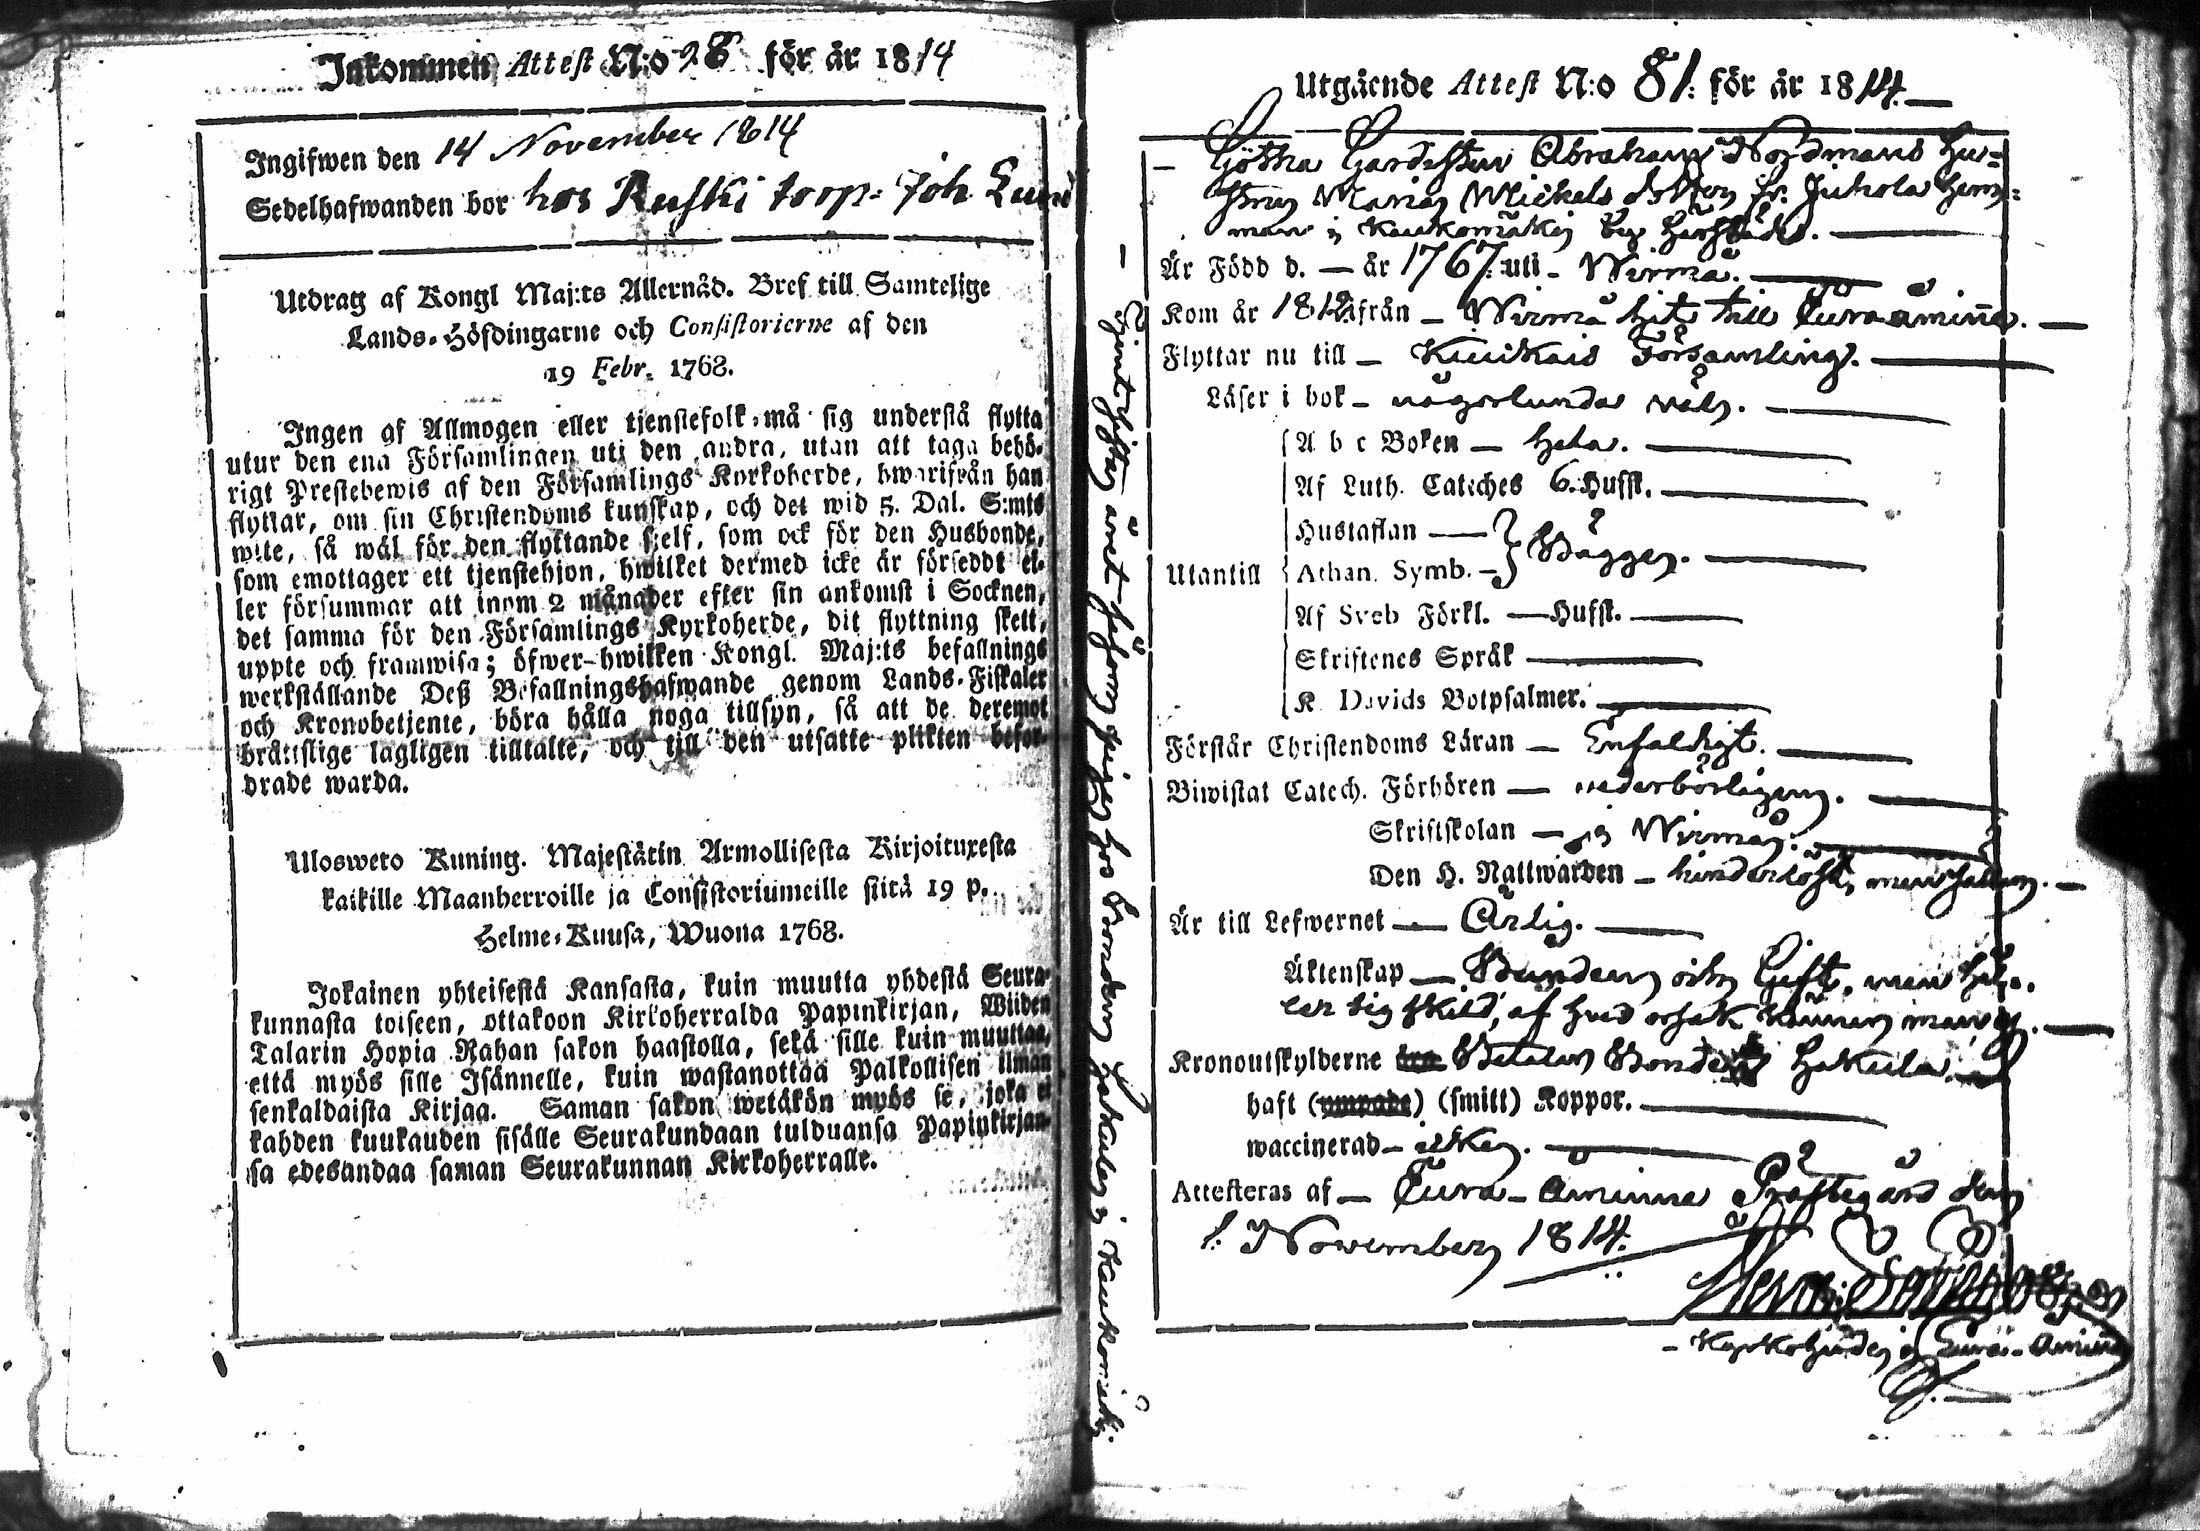 Inkommen Attest N:o 28 för år 1814
Ingifwen den 14 November 1814
Sedelhafwanden bor hos Ruski torp: Joh Lund
Utdrag af Kongl Maj:ts Allernåd. Bref till Samtelige
Lands-Höfdingarne och Consistorierne af den
19 Febr. 1768.
Ingen af Allmogen eller tjenstefolk må sig understå flytta
utur den ena Församlingen uti den andra, utan att taga behö-
rigt Prestebewis af den Församlings Kyrkoherde, hwarifrån han
flyttar, om sin Christendoms kunskap, och det wid 5. Dal. S:mts
wite, så wäl för den flyttande sjelf, som ock för den Husbonde,
som emottager ett tjenstehjon, hwilket dermed icke är förseddt el-
ler försummar att inom 2 månader efter sin ankomst i Socknen,
det samma för den Församlings Kyrkoherde, dit flyttning skett,
uppte och framwisa; öfwer-hwilken Kongl. Maj:ts befallnings
werkställande Deß Befallningshafwande genom Lands-Fiskaler
och Kronobetjente, böra hålla noga tillsyn, så att de deremot
bråttslige lagligen tilltalte, och till den utsatte plikten befor-
drade warda.
Ulosweto Kuning. Majestätin Armollisesta Kirjoituxesta
kaikille Maanherroille ja Consistoriumeille siitä 19 p.
Helme-Kuusa, Wuona 1768.
Jokainen yhteisestä Kansasta, kuin muutta yhdestä Seura-
kunnasta toiseen, ottakoon Kirkoherralda Papinkirjan, Wiiden
Talarin Hopia Rahan sakon haastolla, sekä sille kuin muuttaa,
että myös sille Isännelle, kuin wastanottaa Palkollisen ilman
senkaldaista Kirjaa. Saman sakon wetäkön myös se, joka ei
kahden kuukauden sisälle Seurakundaan tulduansa Papinkirjan-
sa edesandaa saman Seurakunnan Kirkoherralle.
Utgående Attest N:o 81. för år 1814.
Götha Gardisten Abraham Nordmans Hu-
stru Maria Mickels dotter fr. Juhola hem-
man i Kaukomäki by härstädes.
Är Född d. — år 1767. uti - Wirmå.
Kom år 1812 ifrån - Wirmo hit till Eura åminne.
Flyttar nu till - Kiukais Församling.
Läser i bok - någorlunda wäl.
A b c Boken — hela.
Af Luth. Cateches 6. Hufst.
Hustaflan —
Utantill Athan. Symb. - Bägge.
Af Sveb Förkl. — Hufst.
Skriftenes Språk
K. Davids Botpsalmer.
Förstår Christendoms Läran — Enfaldigt.
Biwistat Catech. Förhören — wederbörligen.
Skriftskolan — i Wirmå.
Den H. Nattwarden - hinderlöst, men sällan.
Är till Lefwernet — Ärlig.
Äktenskap — Bunden och Gift, men hål-
ler sig skild, af hvad orsak känner man ej.
Kronoutskylderne Betalar Bonden Hakula
haft (ympade) (smitt) Koppor.
waccinerad - icke.
Attesteras af — Eura-Åminne Prästegård den
1. November 1814.
Kyrkoherde i Eura-Åminne
Tjent sistas året såsom piga hos Bonden Hakula i Kaukomäki.